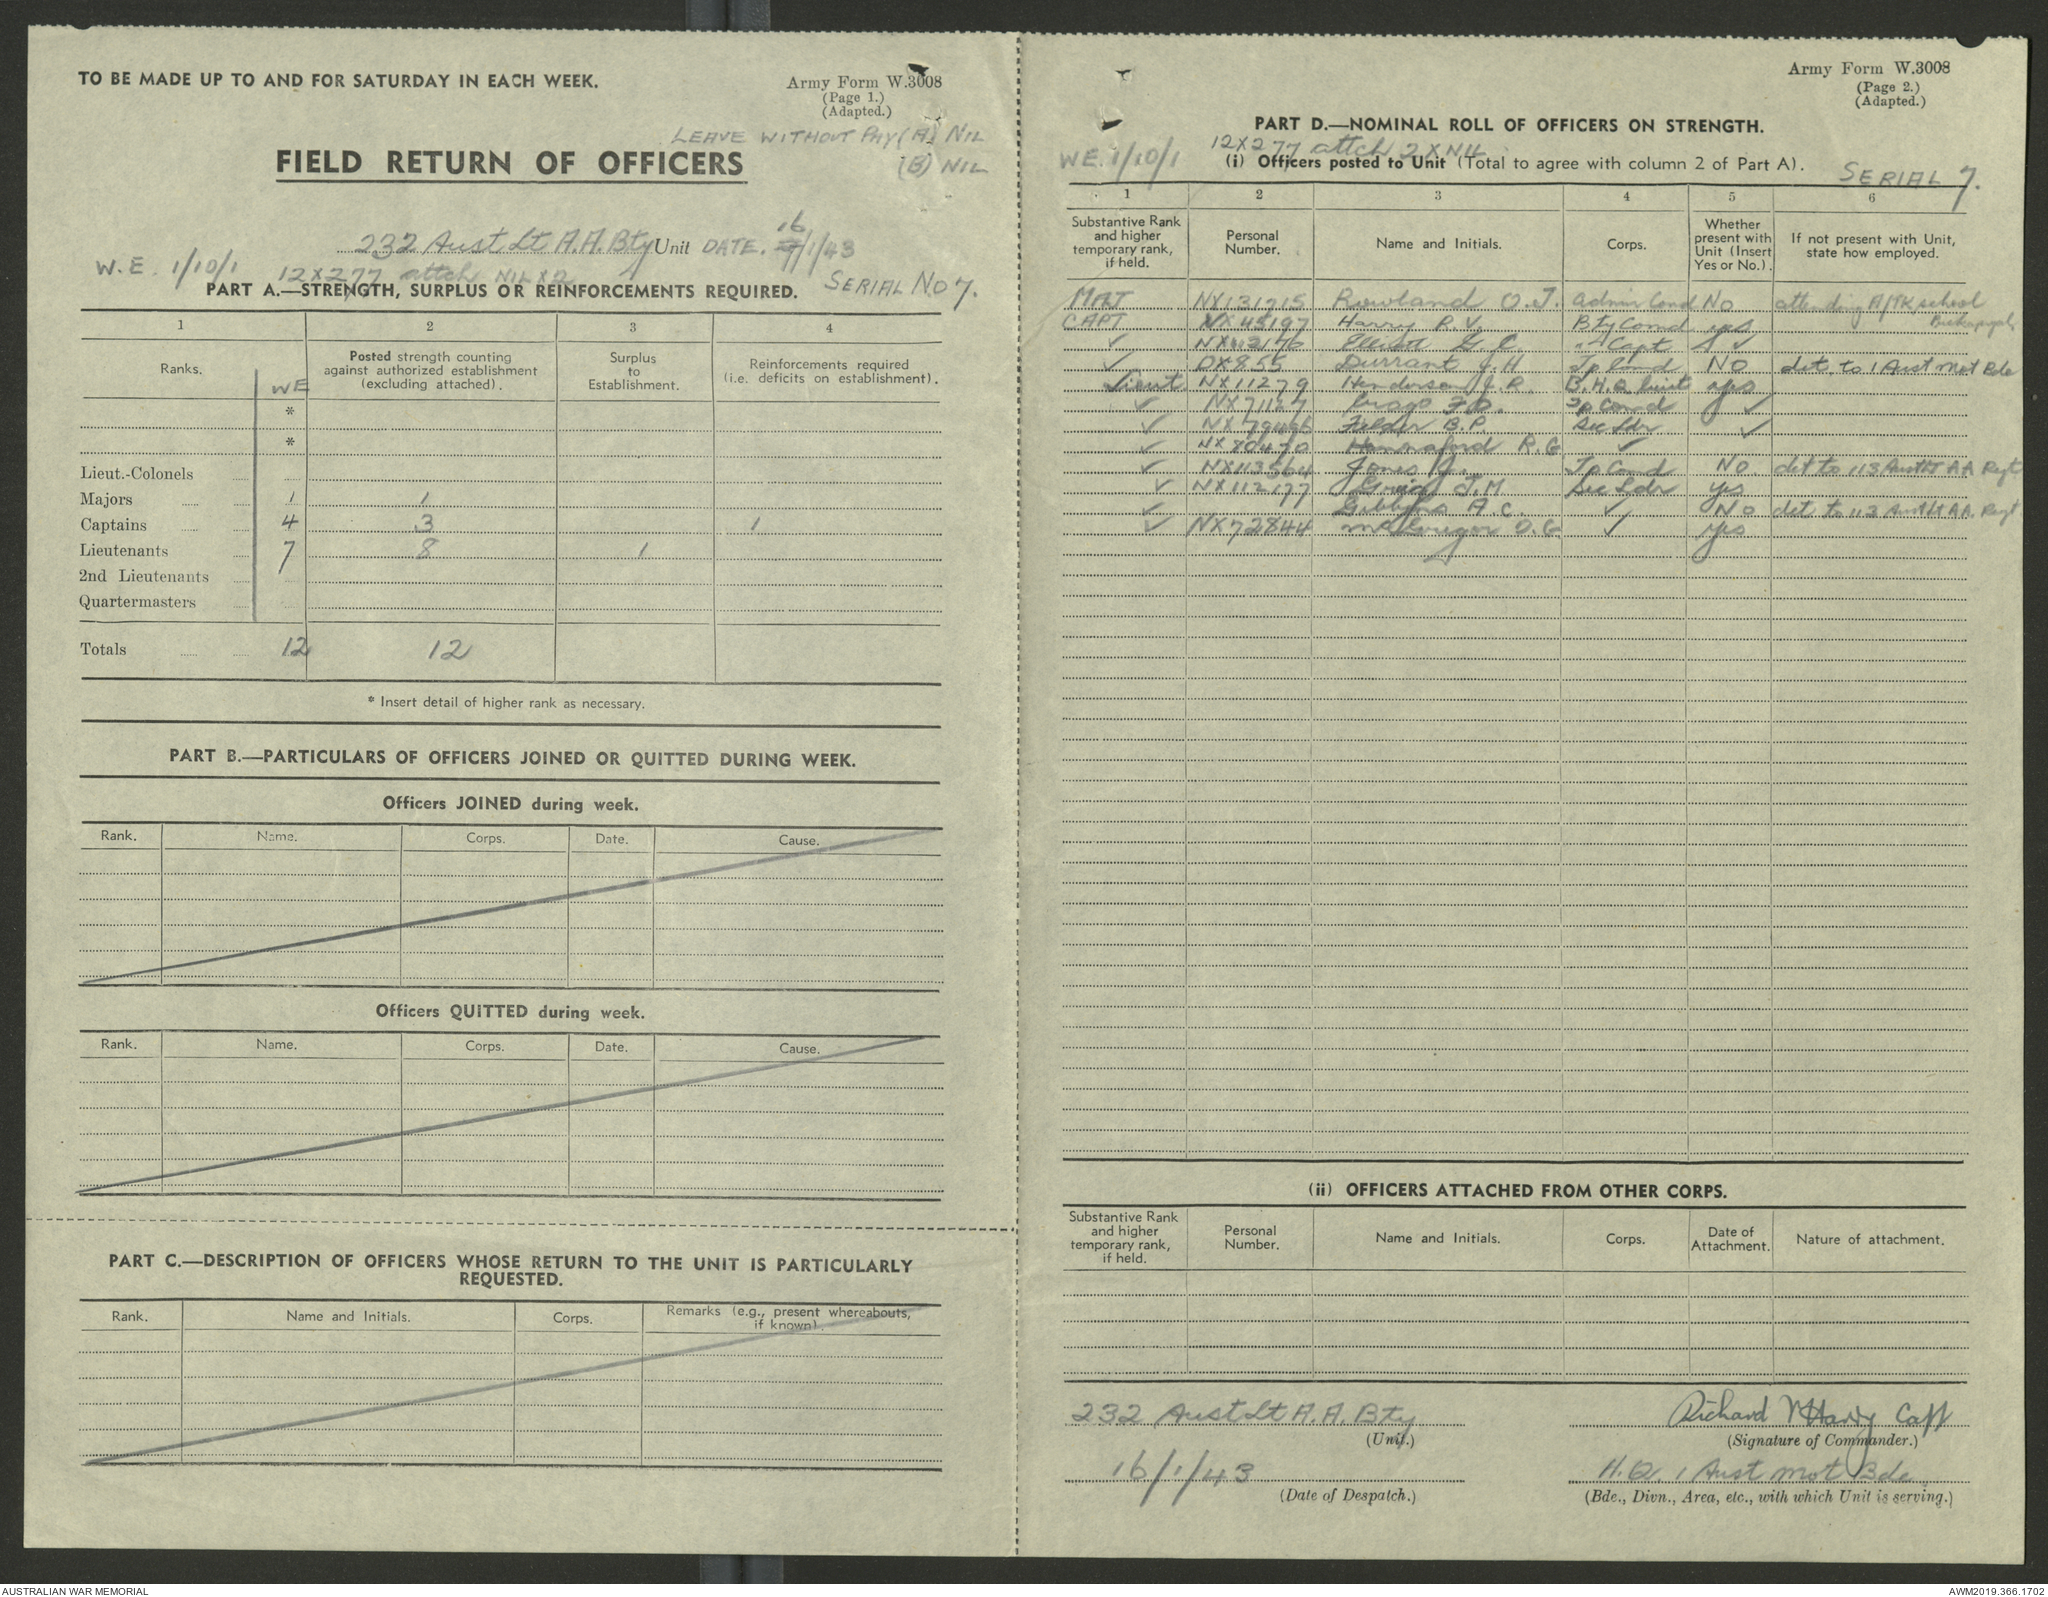 TO BE MADE UP TO AND FOR SATURDAY IN EACH WEEK.
Army Form W.3008
(Page 1.)
(Adapted.)
LEAVE WITHOUT PAY (A) NIL
(B) NIL
FIELD RETURN OF OFFICERS
232 Aust Lt A.A. Bty Unit DATE. 16/1/43
W.E. 1/10/1 12X277 attch NIL X2 SERIAL No 7.
PART A.—STRENGTH, SURPLUS OR REINFORCEMENTS REQUIRED.
1 2 3 4
Ranks. WE Posted strength counting against authorized establishment (excluding attached). Surplus to Establishment. Reinforcements required (i.e. deficits on establishment).
*
*
Lieut.-Colonels
Majors 1 1
Captains 4 3 1
Lieutenants 7 8 1
2nd Lieutenants
Quartermasters
Totals 12 12
* Insert detail of higher rank as necessary.
PART B.—PARTICULARS OF OFFICERS JOINED OR QUITTED DURING WEEK.
Officers JOINED during week.
Rank. Name. Corps. Date. Cause.
Officers QUITTED during week.
Rank. Name. Corps. Date. Cause.
PART C.—DESCRIPTION OF OFFICERS WHOSE RETURN TO THE UNIT IS PARTICULARLY
REQUESTED.
Rank. Name and Initials. Corps. Remarks (e.g., present whereabouts, if known).
Army Form W.3008
(Page 2.)
(Adapted.)
PART D.—NOMINAL ROLL OF OFFICERS ON STRENGTH.
WE. 1/10/1 12X277 attch 2 X NIL
(i) Officers posted to Unit (Total to agree with column 2 of Part A).
SERIAL 7.
1 2 3 4 5 6
Substantive Rank and higher temporary rank, if held. Personal Number. Name and Initials. Corps. Whether present with Unit (Insert Yes or No.). If not present with Unit, state how employed.
MAJ NX131215 Rowland O.J. Admin Comd No attending A/TK school
CAPT NX45197 Harry R.V. Bty Comd yes
✓ Elliott G.C. " Capt ✓
✓ DX855 Durrant J.H Tp Comd NO det to 1 Aust Mot Bde
Lieut NX11279 Henderson J.R. B.H.Q. yes
✓ NX71127 F.D. Tp Comd ✓
✓ Felder B.P. Sec Ldr ✓
✓ NX80470 Hannaford R.G ✓
✓ NX113564 Jones J. Tp Comd No det to 113 Aust Lt AA Regt
✓ NX112177 J.M Sec Ldr yes
✓ Gibbons A.C. ✓ NO det to 113 Aust Lt AA Regt
✓ NX72844 McGregor O.G ✓ yes
(ii) OFFICERS ATTACHED FROM OTHER CORPS.
Substantive Rank and higher temporary rank, if held. Personal Number. Name and Initials. Corps. Date of Attachment. Nature of attachment.
232 Aust Lt A.A. Bty
(Unit.)
Richard V Harry Capt
(Signature of Commander.)
16/1/43
(Date of Despatch.)
H.Q. 1 Aust Mot Bde
(Bde., Divn., Area, etc., with which Unit is serving.)
AUSTRALIAN WAR MEMORIAL
AWM2019.366.1702